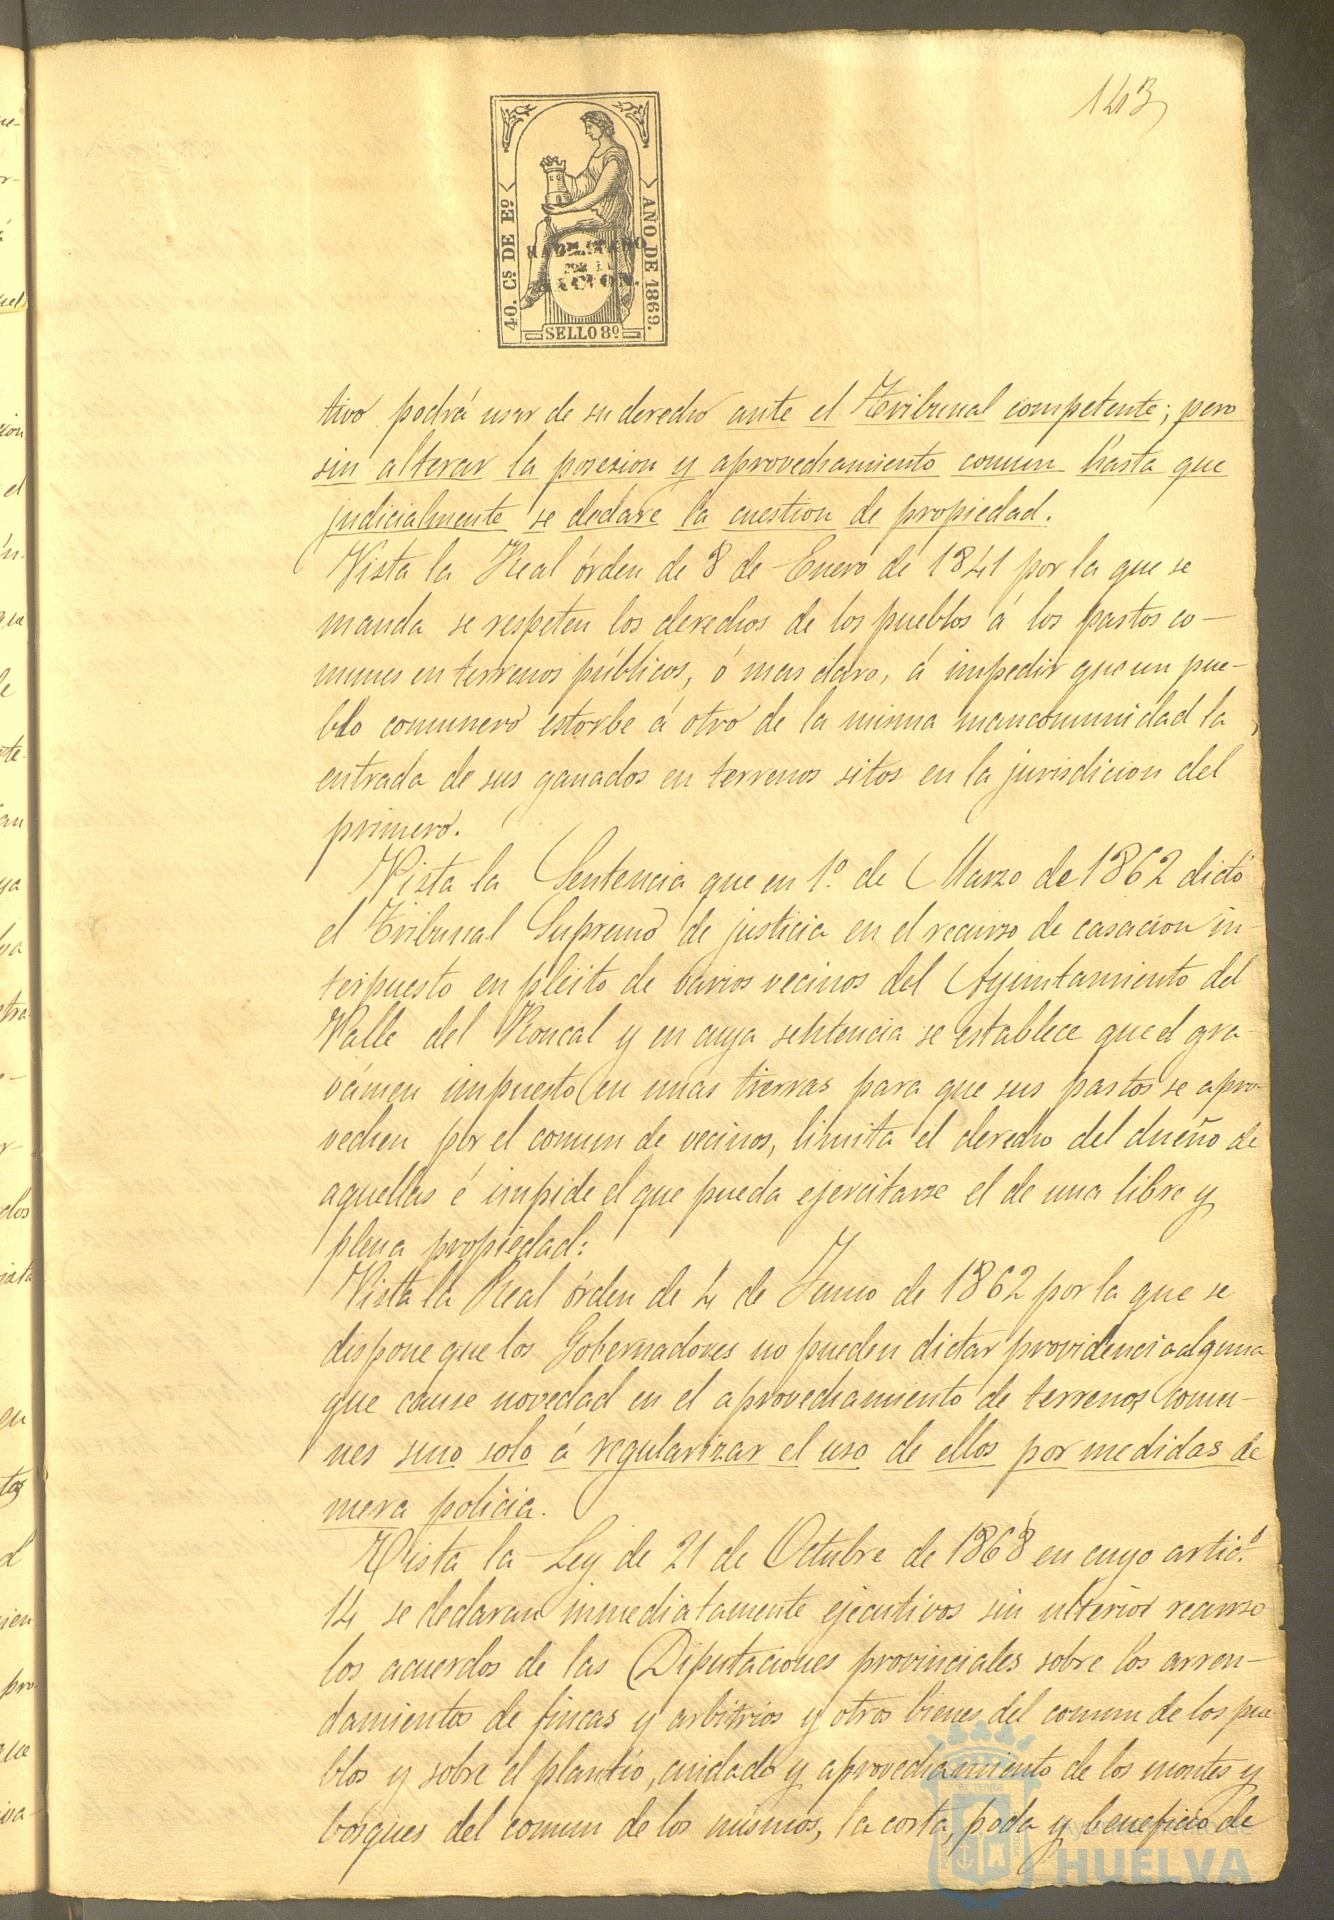 143
40. Cs DE Eº
AÑO DE 1869.
HABILITADO
POR LA
NACION.
SELLO 8º
tivo podrá usar de su derecho ante el Tribunal competente; pero
sin alterar la posesion y aprovechamiento comun hasta que
judicialmente se declare la cuestion de propiedad.
Vista la Real órden de 8 de Enero de 1841 por la que se
manda se respeten los derechos de los pueblos á los pastos co-
munes en terrenos públicos, ó mas claro, á impedir que un pue-
blo comunero estorbe á otro de la misma mancomunidad la
entrada de sus ganados en terrenos sitos en la jurisdicion del
primero.
Vista la Sentencia que en 1º de Marzo de 1862 dictó
el Tribunal Supremo de justicia en el recurso de casacion in-
terpuesto en pleito de varios vecinos del Ayuntamiento del
Valle del Roncal y en cuya sentencia se establece que el gra-
vámen impuesto en unas tierras para que sus pastos se apro-
vechen por el comun de vecinos, limita el derecho del dueño de
aquellas é impide el que pueda ejercitarse el de una libre y
plena propiedad:
Vista la Real órden de 4 de Junio de 1862 por la que se
dispone que los Gobernadores no pueden dictar providencia alguna
que cause novedad en el aprovechamiento de terrenos comu-
nes sino solo á regularizar el uso de ellos por medidas de
mera policia.
Vista la Ley de 21 de Octubre de 1868 en cuyo artic.º
14 se declaran inmediatamente ejecutivos sin ulterior recurso
los acuerdos de las Diputaciones provinciales sobre los arren-
damientos de fincas y arbitrios y otros bienes del comun de los pue-
blos y sobre el plantío, cuidado y aprovechamiento de los montes y
bosques del comun de los mismos, la corta, poda y beneficio de
Ayuntamiento de
HUELVA